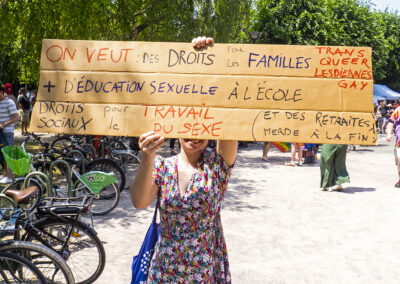 ON VEUT : DES DROITS POUR LES FAMILLES TRANS QUEER LESBIENNES GAY
+ D'ÉDUCATION SEXUELLE À L'ÉCOLE
DROITS SOCIAUX pour le TRAVAIL DU SEXE
(ET DES RETRAITES MERDE À LA FIN)